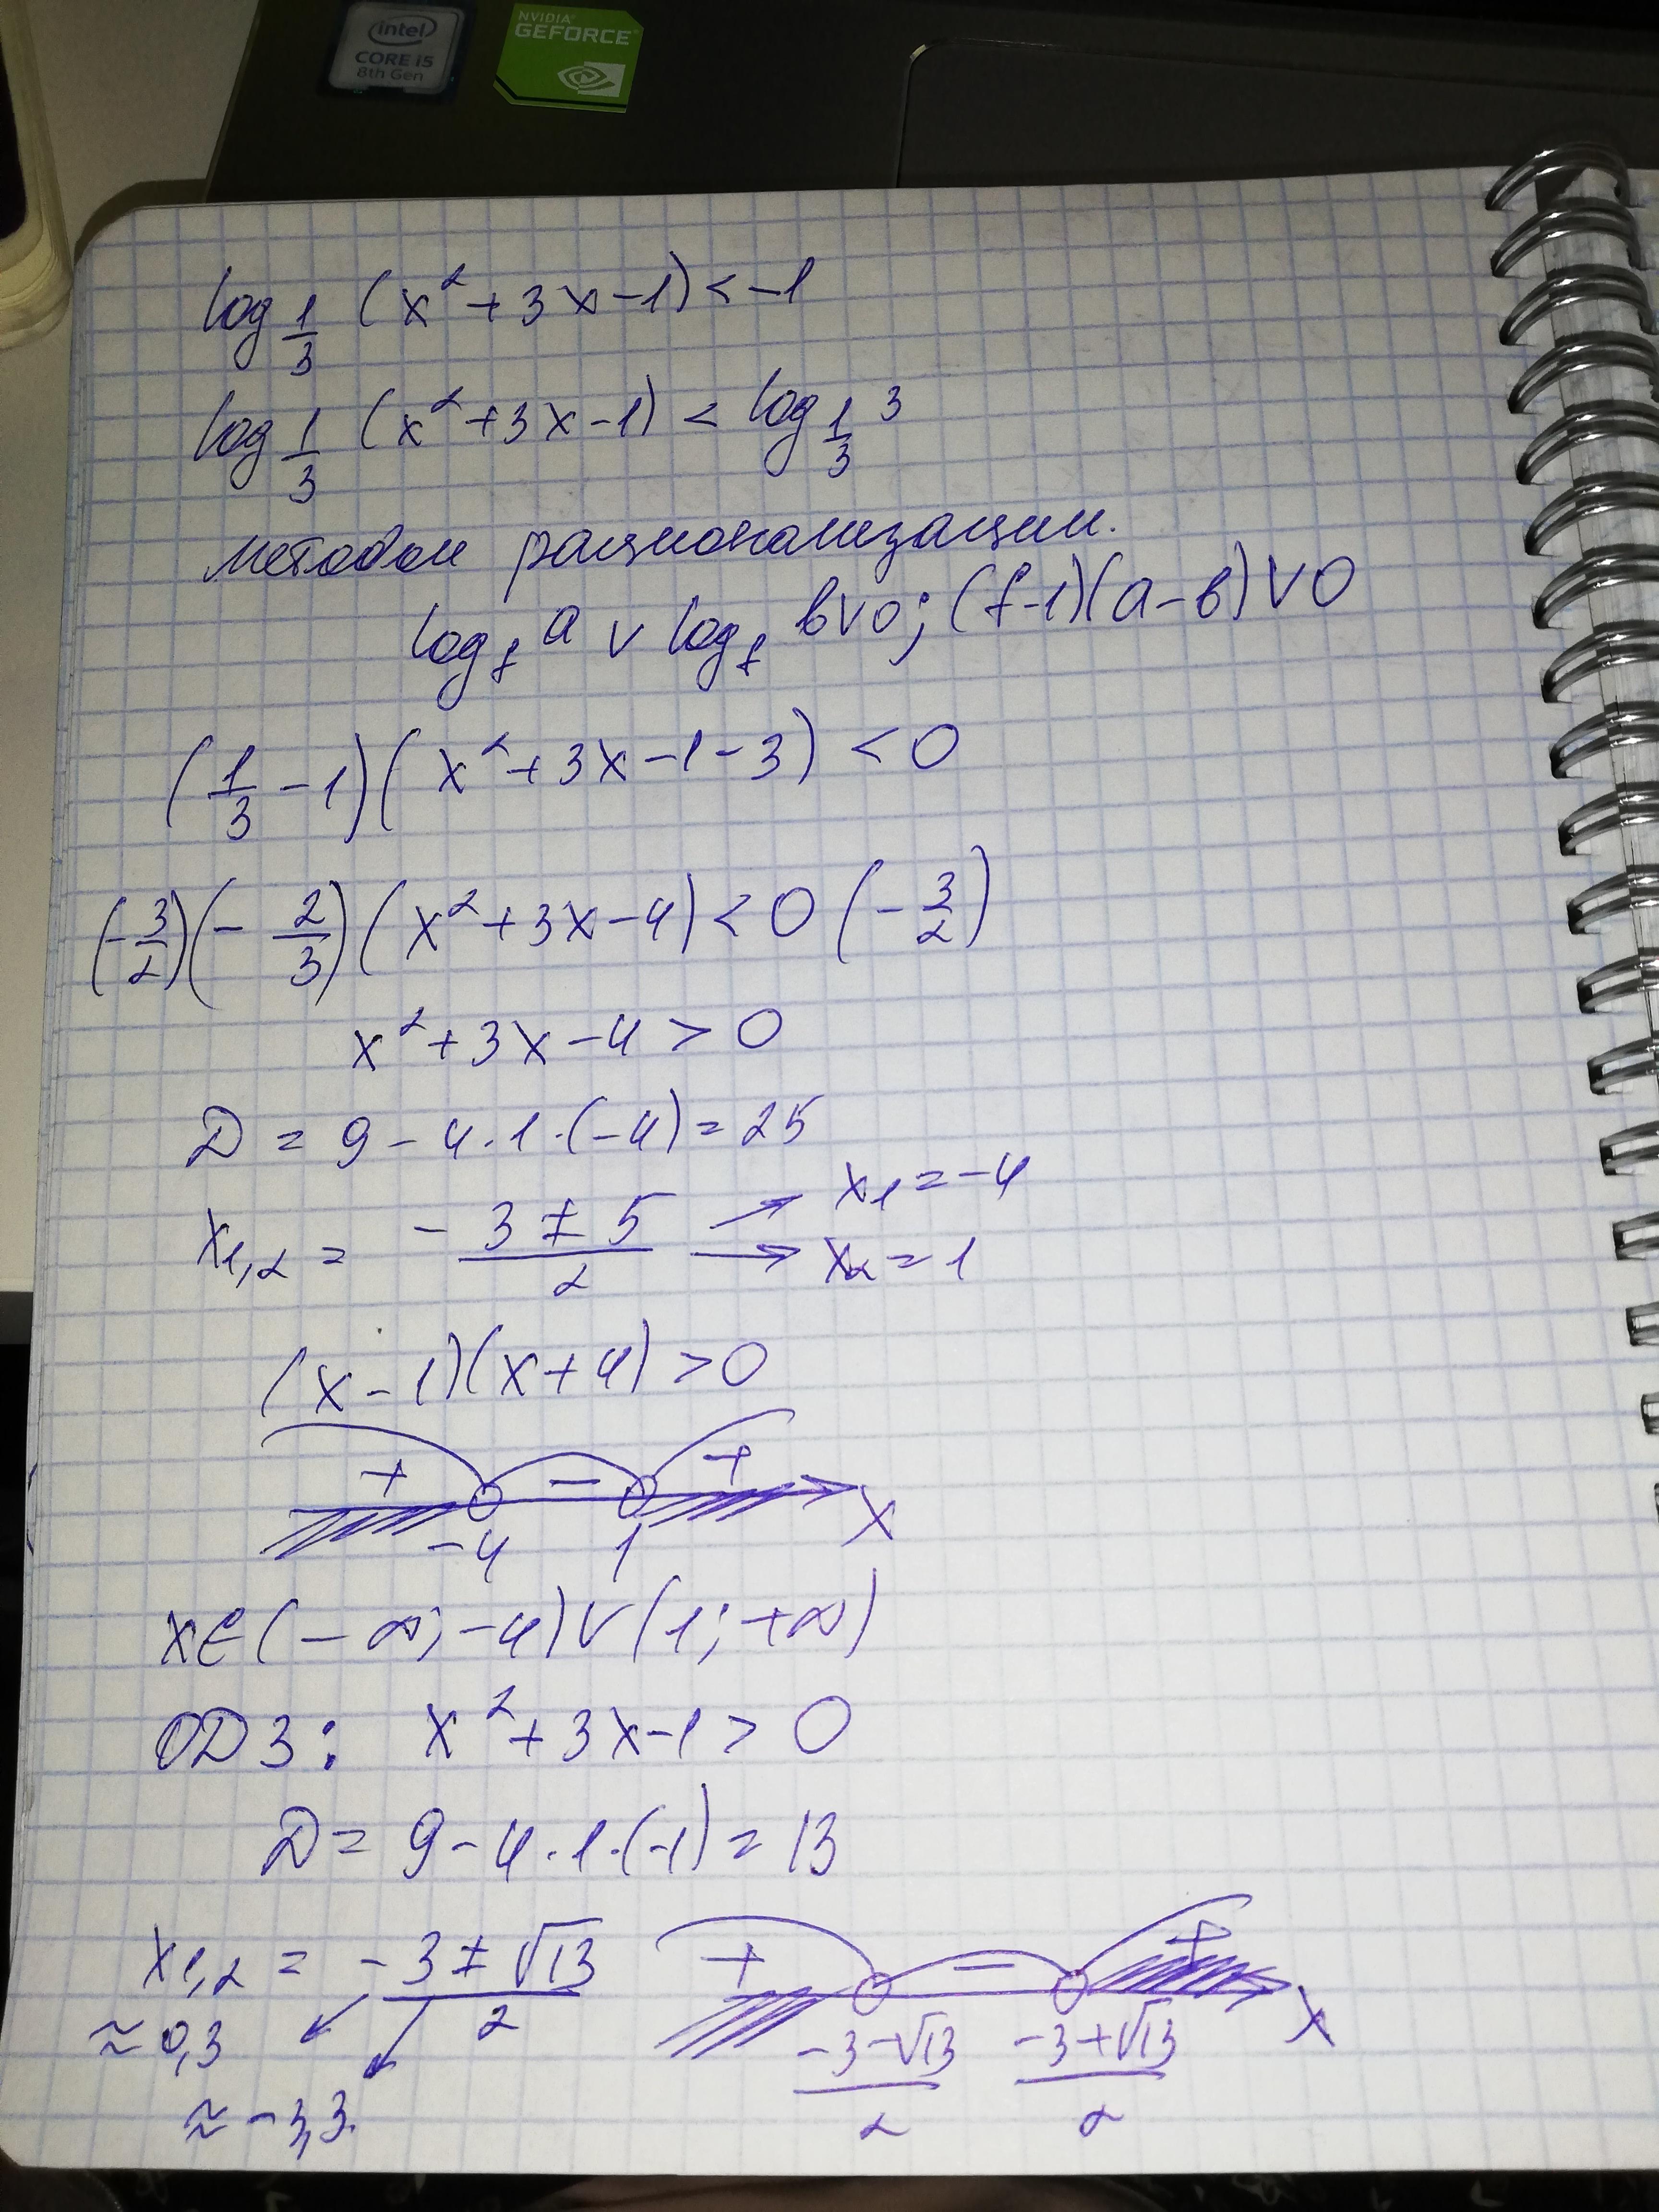 intel
CORE i5
8th Gen
NVIDIA
GEFORCE
log 1/3 (x² + 3x - 1) < -1
log 1/3 (x² + 3x - 1) < log 1/3 3
методом рационализации.
log_f a v log_f b v 0; (f-1)(a-b) V 0
(1/3 - 1)(x² + 3x - 1 - 3) < 0
(-3/2)(-2/3)(x² + 3x - 4) < 0 (-3/2)
x² + 3x - 4 > 0
D = 9 - 4·1·(-4) = 25
x1,2 = -3 ± 5 / 2 → x1 = -4
→ x2 = 1
(x - 1)(x + 4) > 0
+ - +
-4 1 x
x∈(-∞; -4)∪(1; +∞)
ОДЗ: x² + 3x - 1 > 0
D = 9 - 4·1·(-1) = 13
x1,2 = -3 ± √13 / 2
≈ 0,3
≈ -3,3.
+ - +
-3-√13 / 2 -3+√13 / 2 x